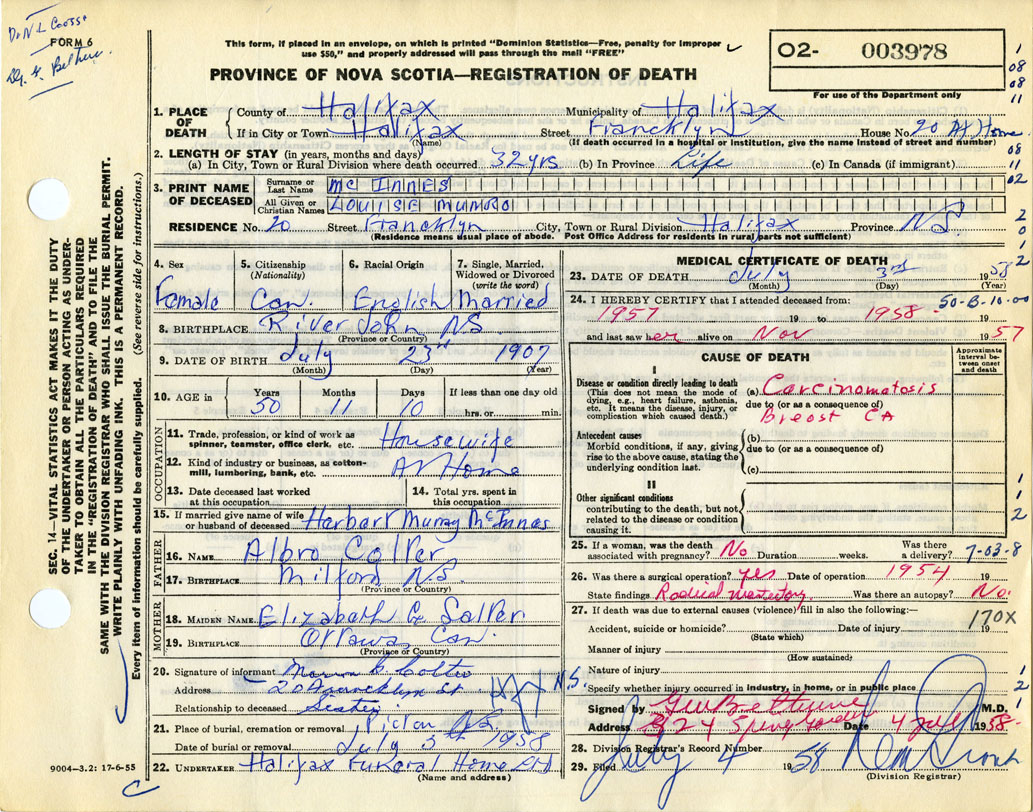 Dr N L Cooss
FORM 6
This form, if placed in an envelope, on which is printed "Dominion Statistics—Free, penalty for improper
use $50," and properly addressed will pass through the mail "FREE"
PROVINCE OF NOVA SCOTIA—REGISTRATION OF DEATH
O2- 003978
For use of the Department only
1
08
08
11
1. PLACE OF DEATH
County of Halifax Municipality of Halifax
If in City or Town Halifax Street Francklyn House No. 20 At Home
(Name) (If death occurred in a hospital or institution, give the name instead of street and number)
2. LENGTH OF STAY (in years, months and days)
(a) In City, Town or Rural Division where death occurred 32 yrs (b) In Province Life (c) In Canada (if immigrant)
08
11
3. PRINT NAME OF DECEASED
Surname or Last Name Mc INNES
02
All Given or Christian Names LOUISE MUNRO
RESIDENCE No. 20 Street Francklyn City, Town or Rural Division Halifax Province N.S.
(Residence means usual place of abode. Post Office Address for residents in rural parts not sufficient)
2
0
1
2
4. Sex Female
5. Citizenship (Nationality) Can.
6. Racial Origin English
7. Single, Married, Widowed or Divorced (write the word) Married
8. BIRTHPLACE River John, N.S.
(Province or Country)
9. DATE OF BIRTH July 23rd 1907
(Month) (Day) (Year)
10. AGE in Years Months Days If less than one day
50 11 10 hrs. or min.
OCCUPATION
11. Trade, profession, or kind of work as spinner, teamster, office clerk, etc. Housewife
12. Kind of industry or business, as cotton-mill, lumbering, bank, etc. At Home
13. Date deceased last worked at this occupation
14. Total yrs. spent in this occupation
15. If married give name of wife or husband of deceased Herbert Murray McInnes
FATHER
16. NAME Albro Colter
17. BIRTHPLACE Milford N.S.
(Province or Country)
MOTHER
18. MAIDEN NAME Elizabeth G.
19. BIRTHPLACE Ottawa Can.
(Province or Country)
20. Signature of informant
Address 20 Francklyn St. N.S.
Relationship to deceased Sister
21. Place of burial, cremation or removal Pictou N.S.
Date of burial or removal July 5th 1958
22. UNDERTAKER Halifax Funeral Home Ltd
(Name and address)
MEDICAL CERTIFICATE OF DEATH
23. DATE OF DEATH July 3rd 1958
(Month) (Day) (Year)
24. I HEREBY CERTIFY that I attended deceased from:
50-B-10-00
1957 19 to 1958 19
and last saw her alive on Nov 1957
CAUSE OF DEATH
Approximate interval between onset and death
I
Disease or condition directly leading to death
(This does not mean the mode of dying, e.g., heart failure, asthenia, etc. It means the disease, injury, or complication which caused death.)
(a) Carcinomatosis
due to (or as a consequence of)
Breast CA
Antecedent causes
Morbid conditions, if any, giving rise to the above cause, stating the underlying condition last.
(b)
due to (or as a consequence of)
(c)
II
Other significant conditions
contributing to the death, but not related to the disease or condition causing it.
1
1
2
25. If a woman, was the death associated with pregnancy? No Duration weeks. Was there a delivery?
7-03-8
26. Was there a surgical operation? yes Date of operation 1954 19
State findings Radical Was there an autopsy? No.
27. If death was due to external causes (violence) fill in also the following:—
170X
Accident, suicide or homicide? Date of injury 19
(State which)
Manner of injury
(How sustained)
Nature of injury
Specify whether injury occurred in industry, in home, or in public place
1
2
1
Signed by M.D.
Address Spring Garden Date 4 July 1958
28. Division Registrar's Record Number
29. Filed July 4 1958
(Division Registrar)
SEC. 14—VITAL STATISTICS ACT MAKES IT THE DUTY
OF THE UNDERTAKER OR PERSON ACTING AS UNDER-
TAKER TO OBTAIN ALL THE PARTICULARS REQUIRED
IN THE "REGISTRATION OF DEATH" AND TO FILE THE
SAME WITH THE DIVISION REGISTRAR WHO SHALL ISSUE THE BURIAL PERMIT.
WRITE PLAINLY WITH UNFADING INK. THIS IS A PERMANENT RECORD.
Every item of information should be carefully supplied. (See reverse side for instructions.)
9004—3.2: 17-6-55